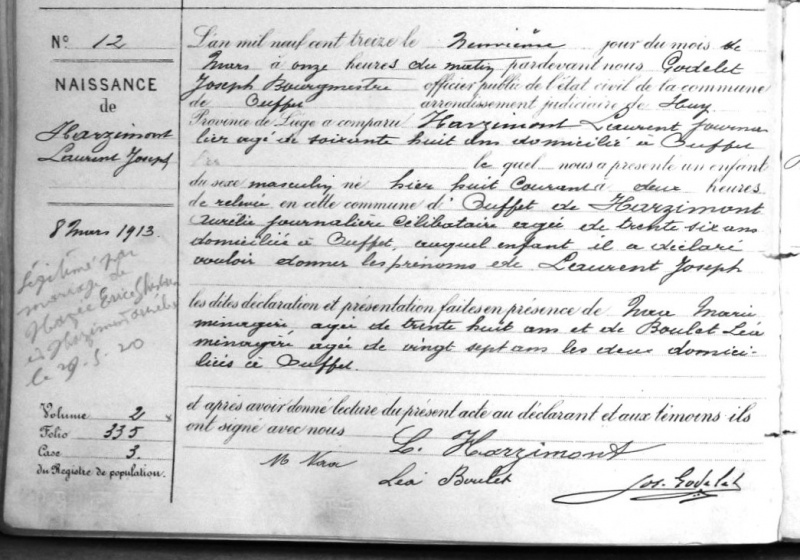 N° 12
NAISSANCE
de
Harzimont
Laurent Joseph
8 Mars 1913.
Légitimé par
mariage de
à Harzimont
le 29.5.20
Volume 2
Folio 335
Case 3.
du Registre de population.
L'an mil neuf cent treize le neuvième jour du mois de
Mars à onze heures du matin pardevant nous Godelet
Joseph Bourgmestre officier public de l'état civil de la commune
de Ouffet arrondissement judiciaire de Huy
Province de Liège a comparu Harzimont Laurent journa
lier agé de soixante huit ans domicilié à Ouffet
le quel nous a présenté un enfant
du sexe masculin né hier huit courant à deux heures
de relevée en cette commune d'Ouffet de Harzimont
Aurélie journalière célibataire agée de trente six ans
domiciliée à Ouffet, auquel enfant il a déclaré
vouloir donner les prénoms de Laurent Joseph
les dites déclaration et présentation faites en présence de Naa Marie
ménagère, agée de trente huit ans et de Boulet Léa
ménagère agée de vingt sept ans les deux domici-
liés à Ouffet.
et après avoir donné lecture du présent acte au déclarant et aux témoins ils
ont signé avec nous L. Harzimont
M Naa
Léa Boulet Jos. Godelet